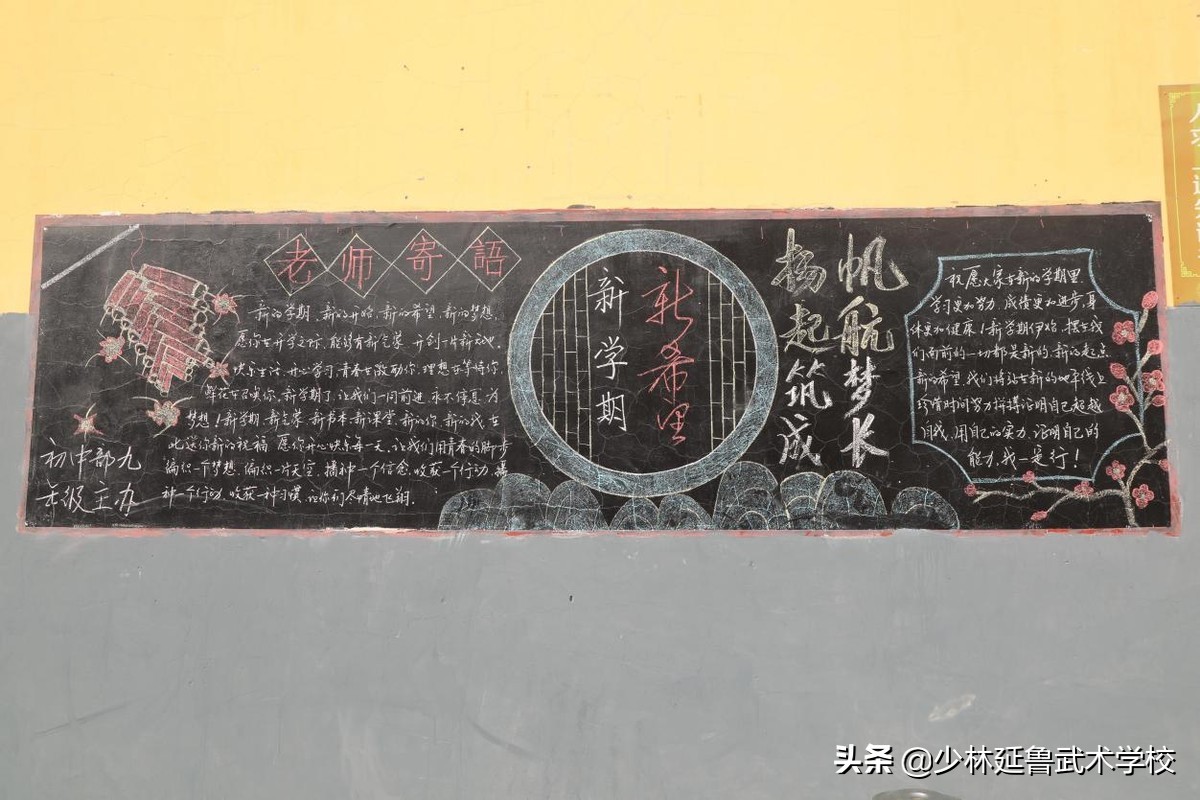 老师寄語
新的学期、新的开始、新的希望、新的梦想.
愿你在开学之际,能够有新气象,开创一片新天地.
快乐生活,开心学习,青春在激励你,理想在等待你,
鲜花在召唤你,新学期了,让我们一同前进,永不停息,为
梦想!新学期,新气象,新书本,新课堂,新的你,新的我,在
此送你新的祝福,愿你开心快乐每一天,让我们用青春的脚步
编织一个梦想,编织一片天空,播种一个信念,收获一个行动,播
种一个行动,收获一种习惯,让你们尽情地飞翔.
初中部九
年级主办
新学期
新希望
扬起筑成
帆航梦长
祝愿大家在新的学期里,
学习更加努力,成绩更加进步,身
体更加健康!新学期伊始,摆在我
们面前的一切都是新的,新的起点
新的希望,我们将站在新的地平线上
珍惜时间努力拼搏证明自己超越
自我,用自己的实力,证明自己的
能力,我一定行!
头条 @少林延鲁武术学校